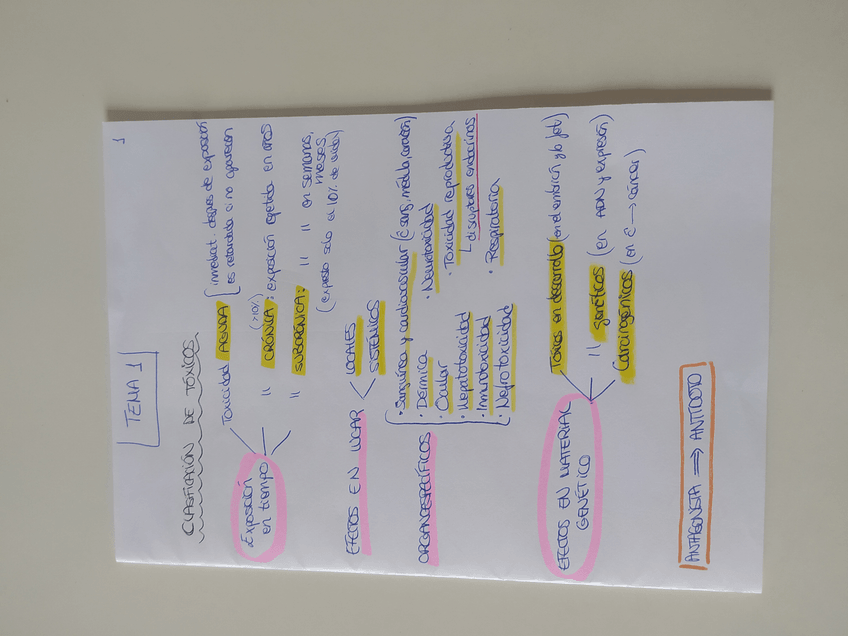 1
TEMA 1
CLASIFICACIÓN DE TÓXICOS.
Exposición en tiempo
Toxicidad AGUDA (inmediat. despues de exposición
es retardada si no aparecen
" CRÓNICA: exposición repetida en años
(>10%)
" SUBCRÓNICA: " " en semanas, meses,
(expuesto solo el 10% de vida)
EFECTOS EN LUGAR
LOCALES
SISTÉMICOS
ORGANOESPECÍFICOS
· Sanguínea y cardiovascular (ĉ sang, médula, corazón)
· Dérmica
· Neurotoxicidad
· Ocular
· Toxicidad reproductiva
disruptores endocrinos
· Hepatotoxicidad
· Inmunotoxicidad
· Respiratoria
· Nefrotoxicidad
EFECTOS EN MATERIAL GENÉTICO
Tóxicos en desarrollo (en el embrión y/o feto)
" genéticos (en ADN y expresión)
Carcinogénicos (en ĉ → cáncer)
ANTAGONISTA ⇒ ANTÍDOTO